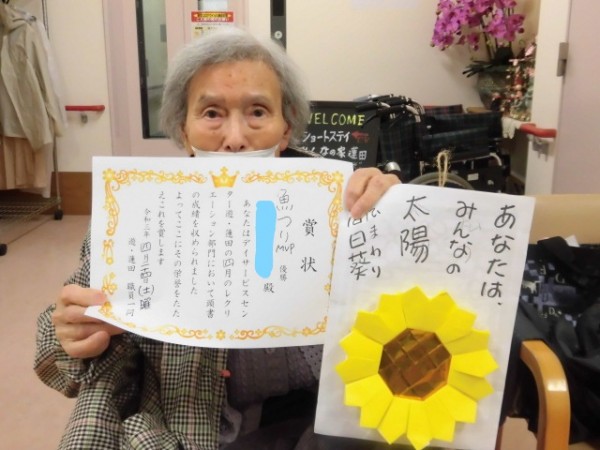 WELCOME
ショートステイ
みんなの家蓮田
賞状
魚つり
MVP
優勝
殿
あなたはデイサービスセン
ター遊・蓮田の四月のレクリ
エーション部門において頭書
の成績を収められました
よってここにその栄誉をたた
えこれを賞します
令和三年
遊・蓮田 職員一同
あなたは、
みんなの
太陽
ひまわり
向日葵